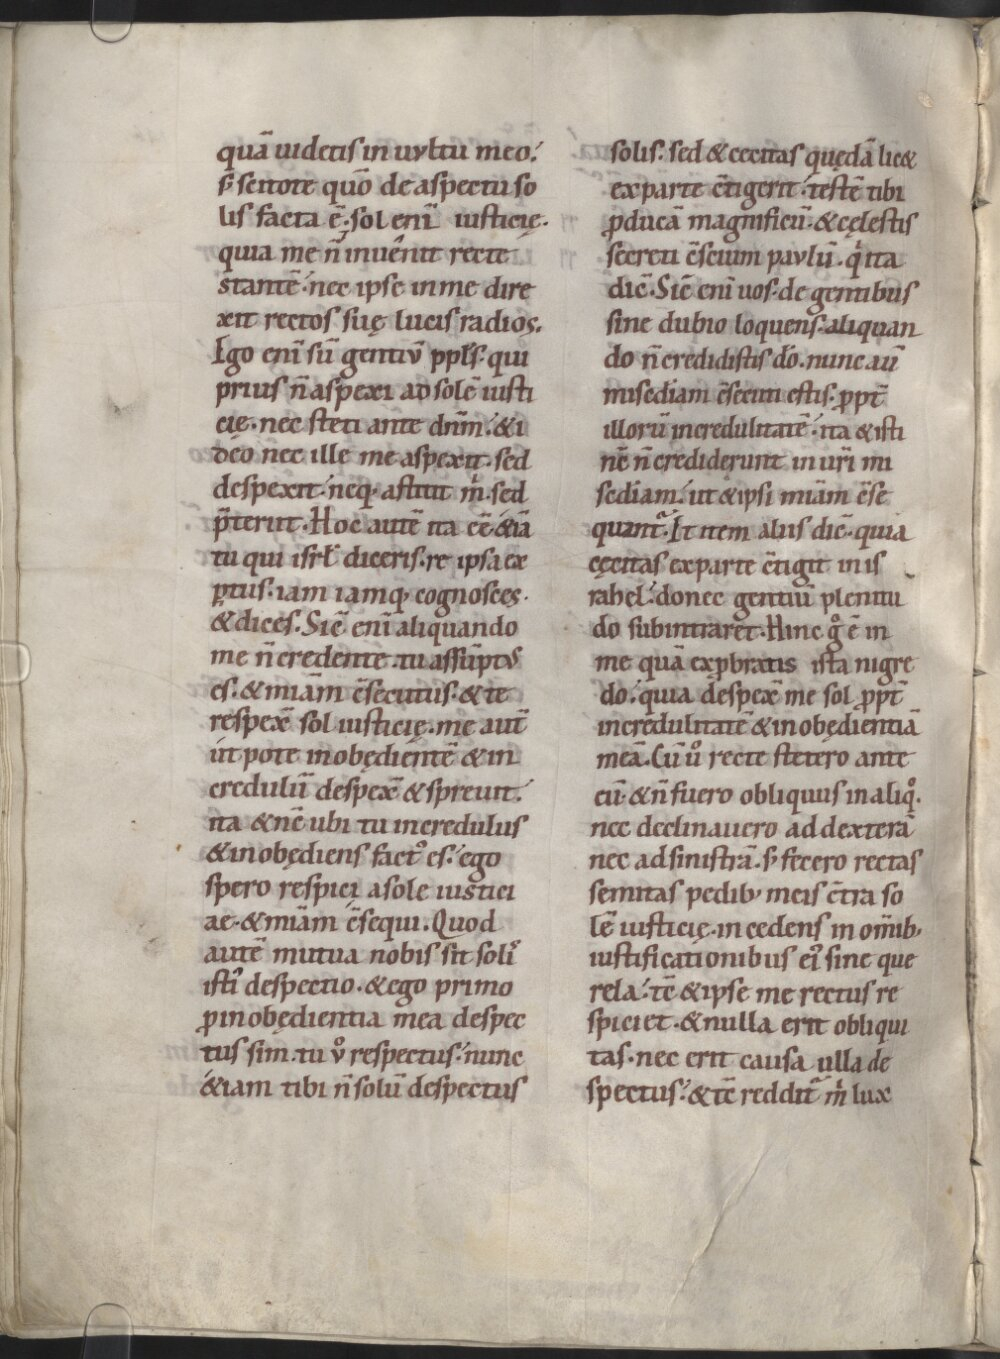 quā uidetis in uvltu meo.
s̄ scitote quō de aspectu so
lis facta ē. sol enī iusticię.
quia me n̄ inuēnit recte
stantē. nec ipse in me dire
xit rectos suę lucis radios.
Ego enī sū gentiū ppl̄s. qui
prius n̄ aspexi ad solē iusti
cię. nec steti ante dn̄m. & i
deo nec ille me aspexit. sed
despexit. neq; astitit m̄. sed
p̄terut. Hoc autē ita eē & iā
tu qui isrl̄ diceris. re ipsa ex
ptus. iam iamq; cognosces.
& dices. Sic̄ enī aliquando
me n̄ credente. tu assūptus
es. & miām c̄secutus. & te
respex̄ sol iusticię. me aut̄
ut pote inobędientē & in
credulū despex̄ & spreuit.
ita & nc̄ ubi tu incredulus
& inobędiens fact᾽ es. ego
spero respici a sole iustici
ae. & miām c̄sequi. Quod
autē mutua nobis sit soli᾽
isti᾽ despectio. & ego primo
ꝓ inobędientia mea despec
tus sim. tu ů respectus. nunc
& iam tibi n̄ solū despectus
solis. sed & cecitas quędā lic&
ex parte c̄tigerit. testē tibi
ꝓducā magnificū. & cęlestis
secreti c̄scium pavlū. q̇ ita
dic̄. Sic̄ enī uos. de gentibus
sine dubio loquens. aliquan
do n̄ credidistis dō. nunc aū
misediam c̄secuti estis. ꝓpt̄
illorū incredulitatē. ita & isti
nc̄ n̄ credidęrunt in ur̄i mi
sediam. ut & ipsi miām c̄se
quant᷑. Et item alius dic̄. quia
cęcitas ex parte c̄tigit in is
rahel. donec gentiū plenitu
do subintraret. Hinc g̊ ē in
me quā exꝓbratis ista nigre
do. quia despex̄ me sol ꝓpt̄
incredulitatē & inobędientiā
meā. Cū ů recte stetero ante
eū. & n̄ fuero obliquus in aliq̊.
nec declinauero ad dexterā
nec ad sinistrā. s̄ fecero rectas
semitas pedib; meis c̄tra so
lē iusticię. incedens in om̄ib;
iustificationibus ei᾽ sine que
rela. tc̄ & ipse me rectus re
spiciet. & nulla erit obliqui
tas. nec erit causa ulla de
spectus. & tc̄ reddit᷑ m̄ lux